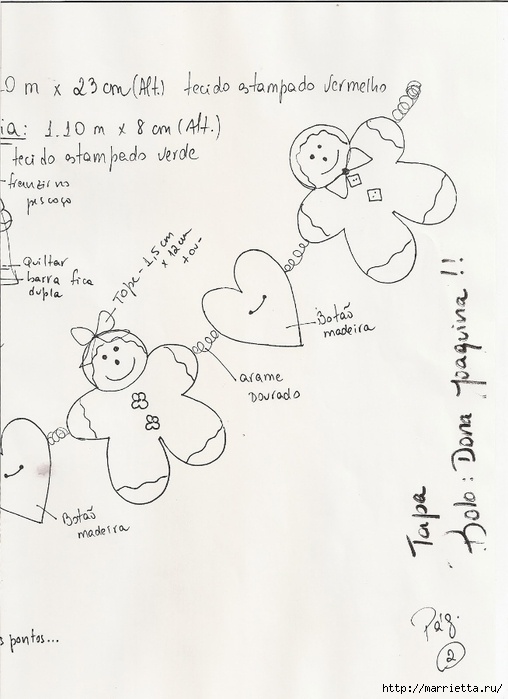 0 m x 23 cm (Alt.) tecido estampado vermelho
ia: 1.10 m x 8 cm (Alt.)
tecido estampado verde
franzir no
pescoço
Quiltar
barra fica
dupla
Tope - 1,5 cm
x 12 cm
+ ou -
Botão
madeira
arame
dourado
Botão
madeira
s pontos...
Tapa
Bolo: Dona Joaquina !!
Pág.
2
http://marrietta.ru/